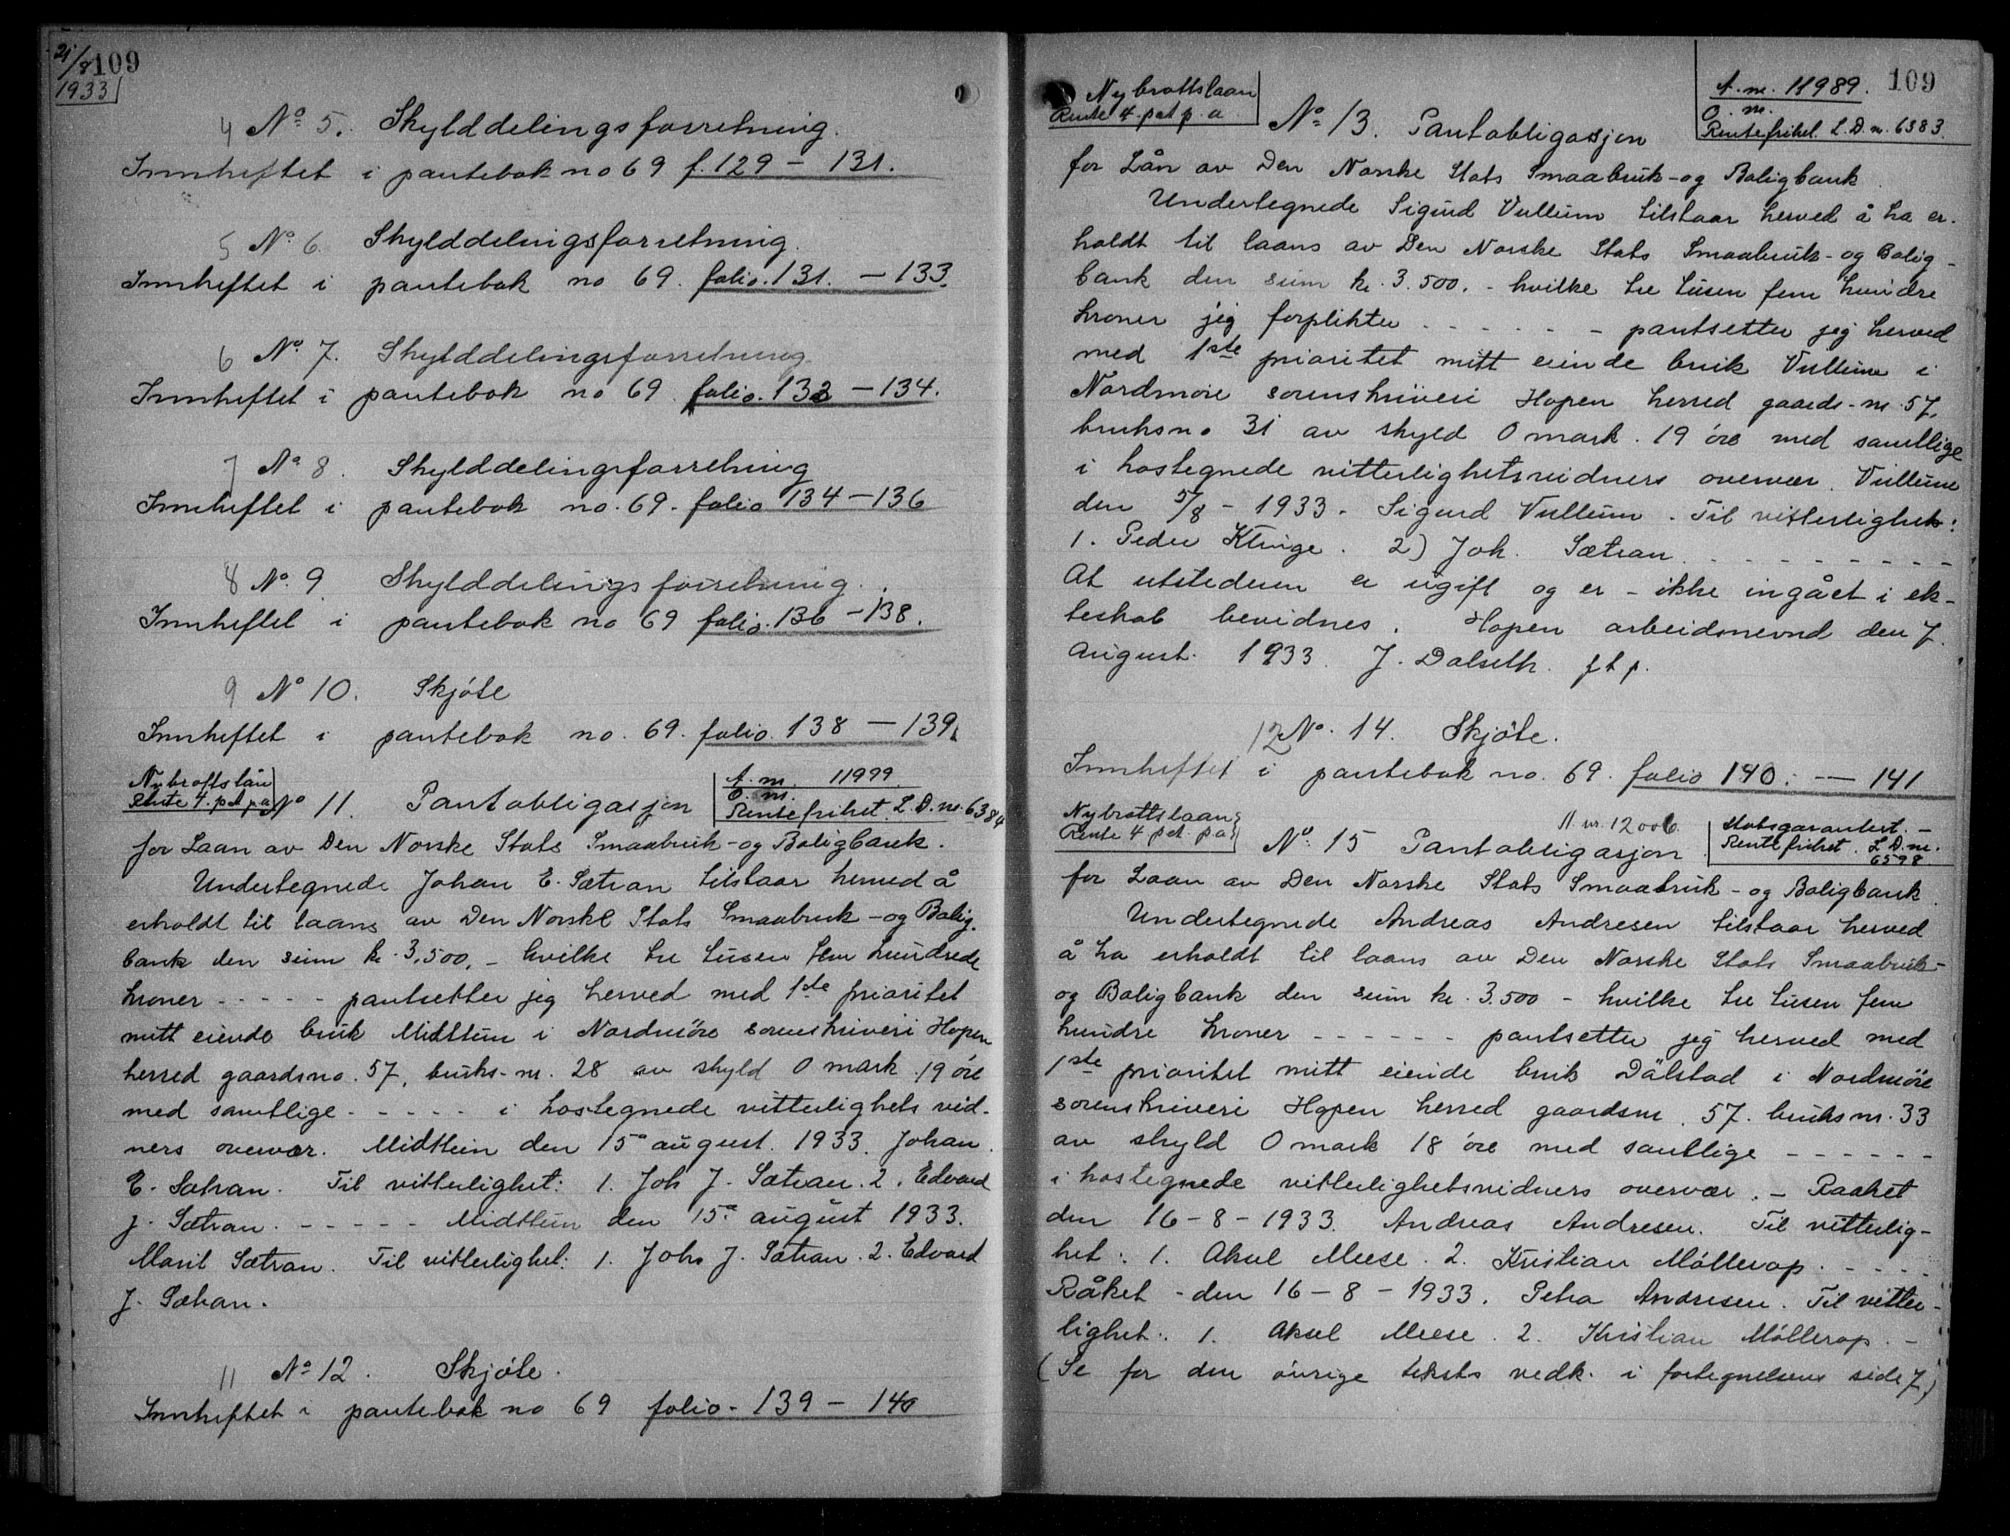 21/8 109
1933
4 No 5. Skylddelingsforretning.
Innheftet i pantebok no 69 f. 129 – 131.
5 No. 6. Skylddelingsforretning.
Innheftet i pantebok no 69. folio. 131. – 133.
6 No. 7. Skylddelingsforretning
Innheftet i pantebok no 69 folio. 133 – 134.
7 No 8. Skylddelingsforretning
Innheftet i pantebok no. 69. folio 134 – 136
8 No. 9 Skylddelingsforretning.
Innheftet i pantebok no 69 folio. 136 – 138.
9 No 10. Skjöte
Innheftet i pantebok no. 69. folio. 138 – 139.
Nybrottslån
Rente 4. pct p a
No 11. Pantobligasjon
A. nr. 11999
O. nr.
Rentefrihet. L. D. nr. 6384
for Laan av Den Norske Stats Smaabruk - og Boligbank.
Undertegnede Johan E. Sætran tilstaar herved å
erholdt til laans av Den Norske Stats Smaabruk - og Bolig.
bank den sum kr. 3,500, – hvilke tre tusen fem hundrede
kroner - - - - - pantsetter jeg herved med 1ste prioritet
mitt eiende bruk Midttun i Nordmöre sorenskriveri Hopen
herred gaardsno. 57, bruks-nr. 28 av skyld 0 mark 19 öre
med samtlige - - - - - i hostegnede vitterlighets vid-
ners overvær. Midttun den 15. august. 1933. Johan
E. Sætran. Til vitterlighet: 1. Joh J. Sætran. 2. Edvard
J. Sætran. - - - - - Midttun den 15. august 1933.
Marit Sætran. Til vitterlighet: 1. Johs J. Sætran. 2. Edvard
J. Sætran.
11 No 12. Skjöte.
Innheftet i pantebok no 69 folio - 139 – 140
Nybrottslaan
Rente 4. pct p. a
No 13. Pantobligasjon
A. nr. 11989. 109
O. nr.
Rentefrihet. L. D. nr. 6383.
for Lån av Den Norske Stats Smaabruk - og Boligbank.
Undertegnede Sigurd Vullum tilstaar herved å ha er-
holdt til laans av Den Norske Stats Smaabruk - og Bolig -
bank den sum kr. 3.500. - hvilke tre tusen fem hundre
kroner jeg forplikter - - - - - - pantsetter jeg herved
med 1ste prioritet mitt eiende bruk Vullum i
Nordmöre sorenskriveri Hopen herred gaards-nr. 57,
bruksno 31 av skyld 0 mark. 19 öre med samtlige
i hostegnede vitterlighetsvidners overvær. Vullum
den 5/8 - 1933. Sigurd Vullum. Til vitterlighet:
1. Peder Klinge. 2) Joh. Sætran - - - - - - - - -
At utstederen er ugift og er - ikke ingået i ek-
teskab bevidnes. Hopen arbeidsnevnd den 7.
august. 1933. J. Dalseth. ftp.
12 No. 14. Skjöte.
Innheftet i pantebok no. 69. folio 140. – 141
Nybrottslaan
Rente 4 pct. p a
11 nr. 12006.
No. 15 Pantobligasjon.
Statsgarantert. –
Rentefrihet. L. D. nr.
6598
for Laan av Den Norske Stats Smaabruk - og Boligbank.
Undertegnede Andreas Andresen tilstaar herved
å ha erholdt til laans av Den Norske Stats Smaabruk-
og Boligbank den sum kr. 3.500 - hvilke tre tusen fem
hundre kroner - - - - - - pantsetter jeg herved med
1ste prioritet mitt eiende bruk Dålstad i Nordmöre
sorenskriveri Hopen herred gaardsnr. 57. bruksnr. 33
av skyld 0 mark 18 öre med samtlige - - - - - -
i hostegnede vitterlighetsvidners overvær. – Raaket
den 16 - 8 - 1933. Andreas Andresen. Til vitterlig-
het: 1. Aksel Meese. 2. Kristian Möllerop. - - - -
Råket - den 16 – 8 – 1933. Petra Andresen. Til vitter-
lighet: 1. Aksel Meese. 2. Kristian Möllerop. –
(Se for den övrige tekst vedk. i fortegnelsens side 7.)